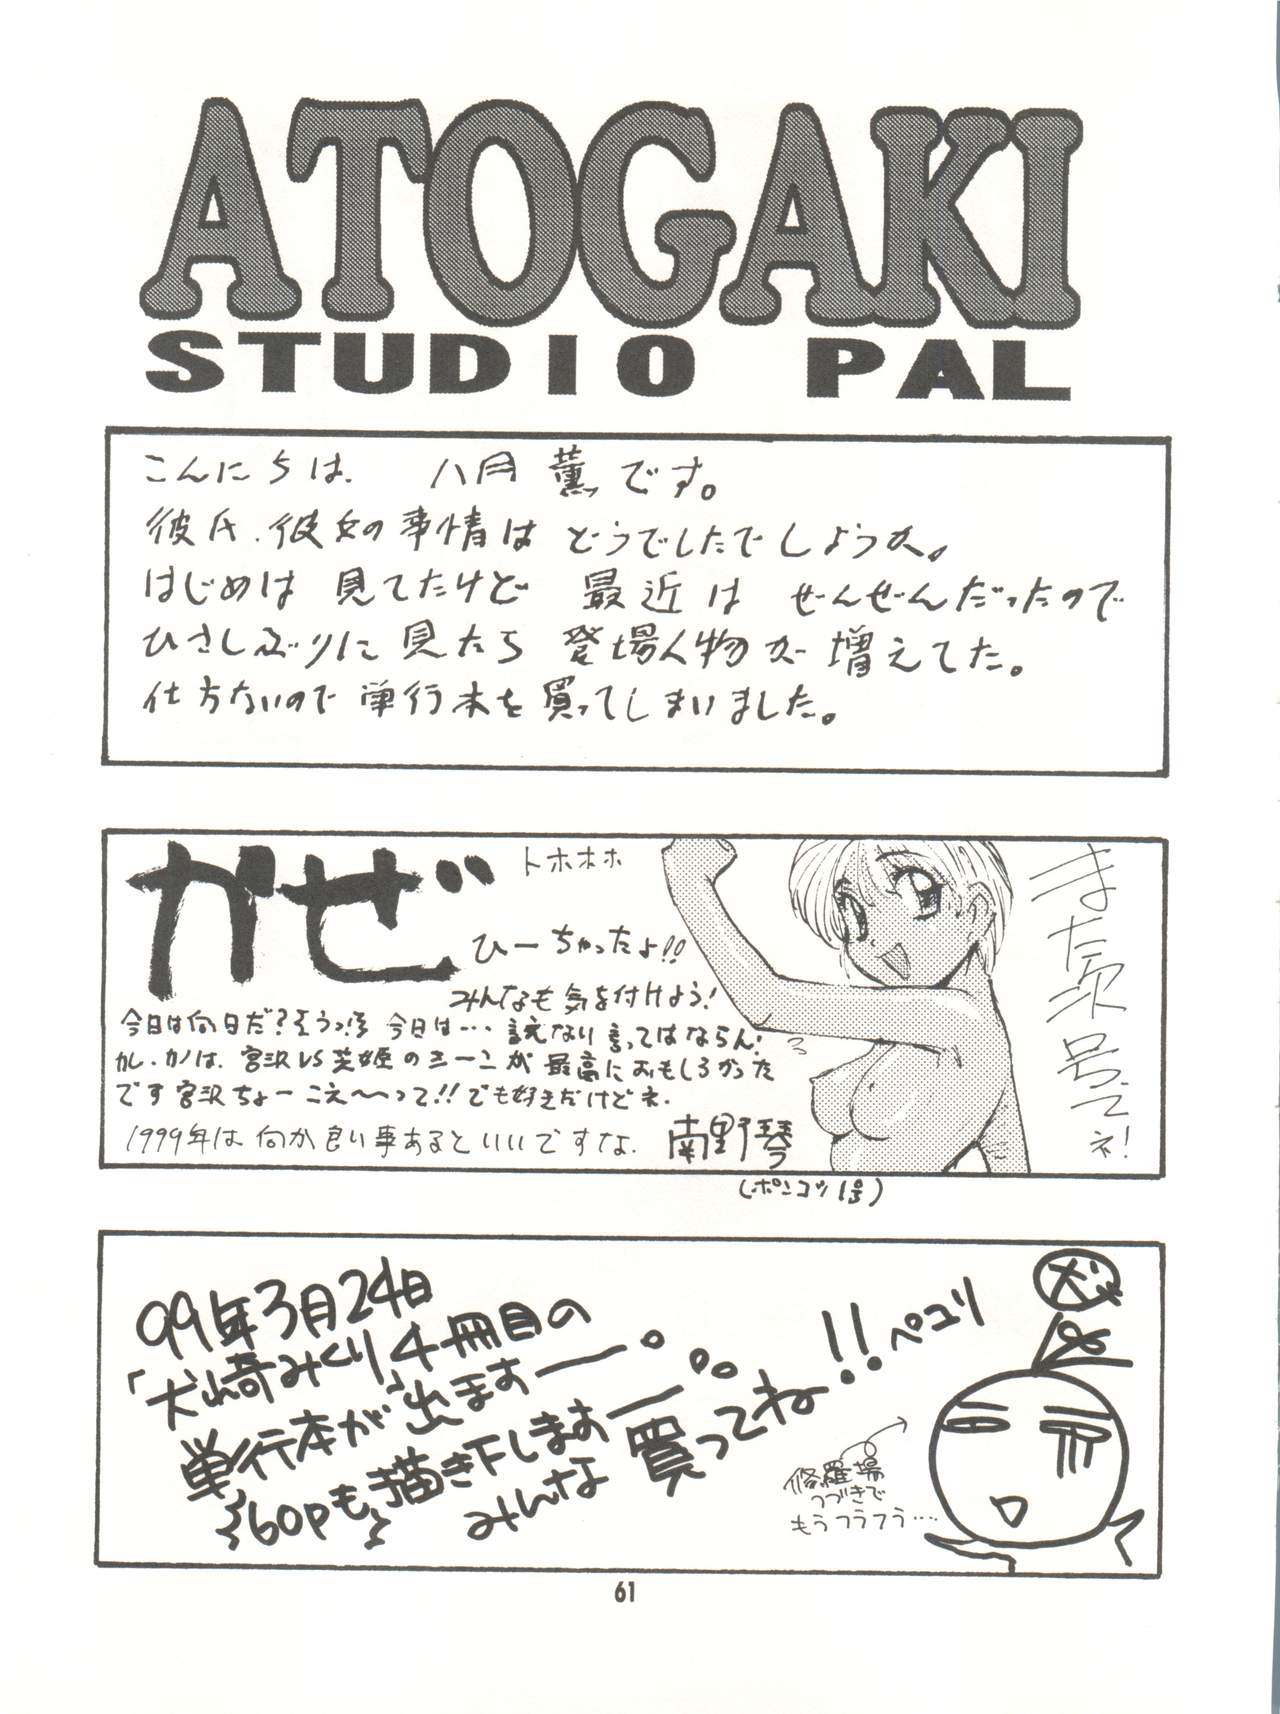 ATOGAKI
STUDIO PAL
こんにちは、 八月 薫です。
彼氏、彼女の事情は どうでしたでしょうか。
はじめは 見てたけど 最近は ぜんぜんだったので
ひさしぶりに 見たら 登場人物が 増えてた。
仕方ないので 単行本を 買ってしまいました。
かぜ
トホホホ
ひーちゃったよ!!
みんなも気を付けよう!
今日は何日だ?そうっ!今日は… 言えない言ってはならん!
カレ・カノは、宮沢VS芝姫のきーこが最高におもしろかった
です宮沢ちょーこえ〜〜って!!でも好きだけどネ.
1999年は何か良い事あるといいですな.
南野琴
(ポンコツ1号)
また次号ってネ!
99年3月24日
「犬崎みくり」4冊目の
単行本が出ますー。
60pも描き下しますー
みんな買ってね!!ペコリ
犬
修羅場
つづきで
もうフラフラ‥‥
61